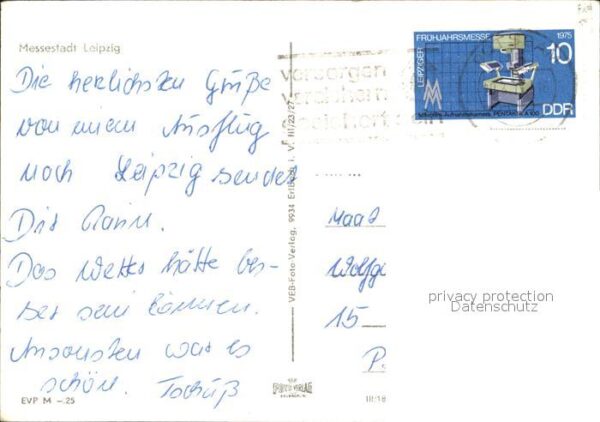 Messestadt Leipzig
Die herzlichsten Grüße
von einem Ausflug
nach Leipzig sendet
Dir
Das Wetter hätte bes-
ser sein können.
Ansonsten war es
schön. Tschüß
EVP M -.25
VEB-Foto-Verlag, 9934 Erlbach i. V. III/23/27
III/18
vorsorgen
versichern
Gesichert sein
LEIPZIGER
FRÜHJAHRSMESSE 1975
10
DDR
PENTAKTA A 100
Maat
Wolfg
15
P
privacy protection
Datenschutz